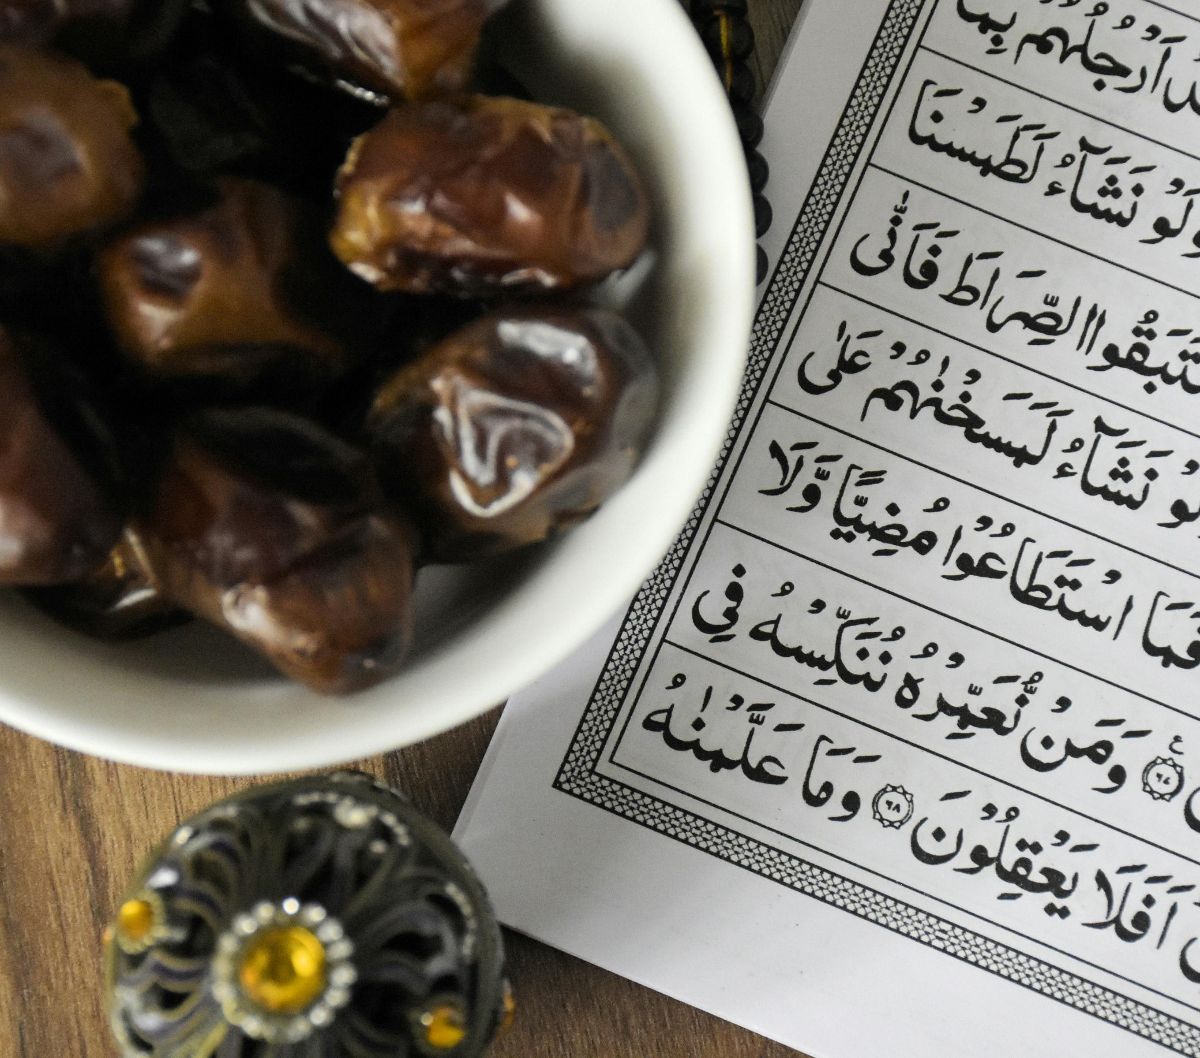 اَرْجُلُهُمْ بِمَا
وَلَوْ نَشَآءُ لَطَمَسْنَا
الصِّرَاطَ فَاَنّٰى
نَشَآءُ لَمَسَخْنٰهُمْ عَلٰى
فَمَا اسْتَطَاعُوْا مُضِيًّا وَّلَا
۶۷ وَمَنْ نُّعَمِّرْهُ نُنَكِّسْهُ فِى
اَفَلَا يَعْقِلُوْنَ ۶۸ وَمَا عَلَّمْنٰهُ